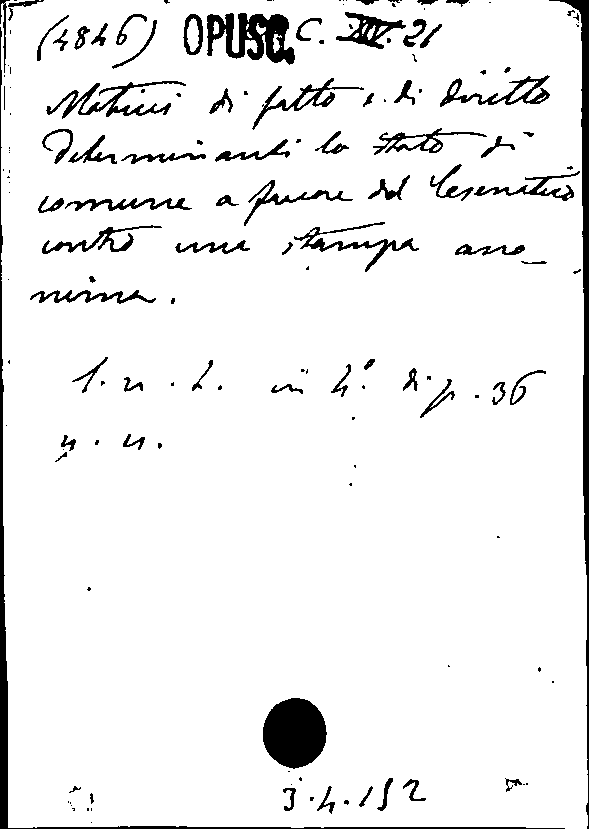 (4846) OPUSC. C. XIV. 21
Motivi di fatto e di diritto
determinanti lo stato di
comune a favore del Cesenatico
contro una stampa ano-
nima.
s. n. t. in 4.° di p. 36
n. n.
3.4.152